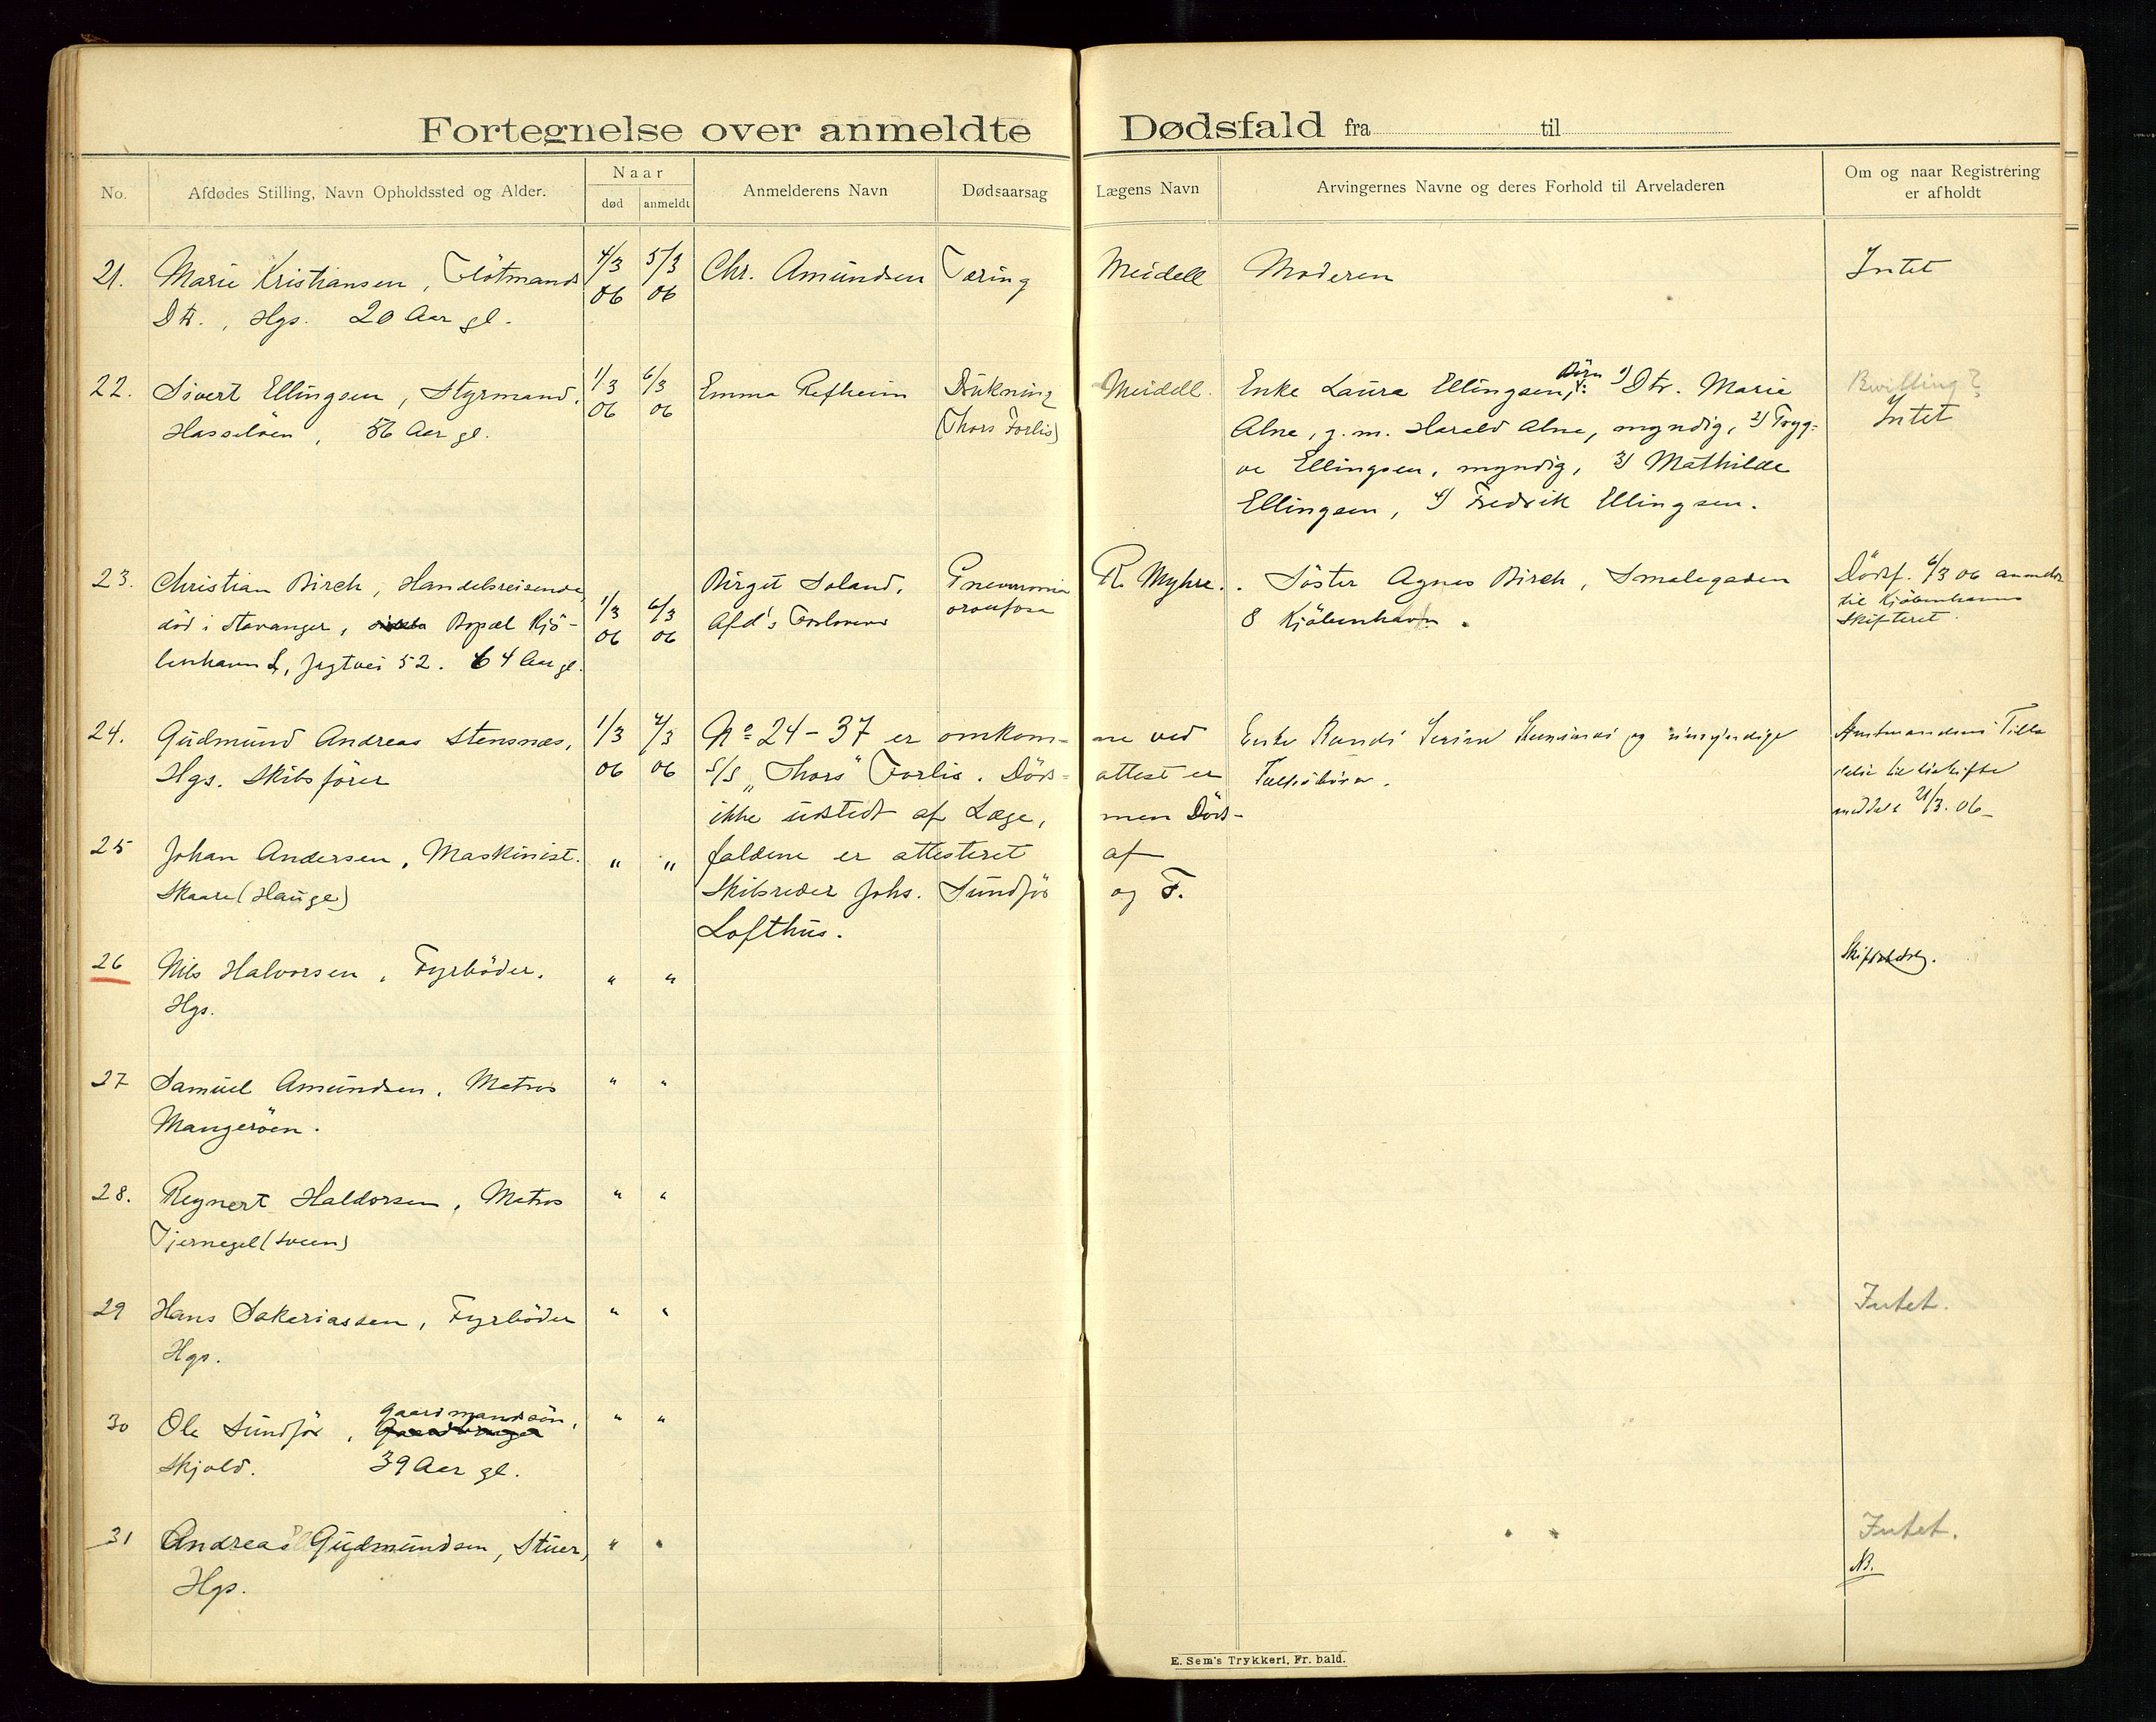 Fortegnelse over anmeldte Dødsfald fra til
No.
Afdødes Stilling, Navn Opholdssted og Alder.
Naar
død
anmeldt
Anmelderens Navn
Dødsaarsag
Lægens Navn
Arvingernes Navne og deres Forhold til Arveladeren
Om og naar Registrering
er afholdt
21. Marie Kristiansen, Flötmands 4/3 5/3 Chr. Amundsen Tæring Meidell Moderen Intet
Dtr., Hgs. 20 Aar gl. 06 06
22. Sivert Ellingsen, Styrmand, 1/3 6/3 Emma Refheim Drukning Meidell. Enke Laura Ellingsen, Börn: 1) Dtr. Marie Bevilling?
Hasselöen, 56 Aar gl. 06 06 (Thors Forlis) Alne, g. m. Harald Alne, myndig, 2) Tryg- Intet
ve Ellingsen, myndig, 3) Mathilde
Ellingsen, 4) Fredrik Ellingsen.
23. Christian Birch, Handelsreisende, 1/3 6/3 Birget Soland, Pneumonia R. Myhre. Söster Agnes Birch, Smalegaden Dödsf. 6/3 06 anmeldt
död i Stavanger, Bopæl Kjö- 06 06 Afd's 8 Kjöbenhavn. til Kjöbenhavns
benhavn L, Jagtvei 52. 64 Aar gl. Skifteret.
24. Gudmund Andreas Stensnæs, 1/3 7/3 No 24-37 er omkom- ne ved Enke Randi Serine Stensnæs og umyndige Amtmandens Tilla
Hgs. Skibsförer 06 06 S/S "Thors" Forlis. Döds- attest er Fællesbörn. delse til Uskifte
ikke udstedt af Læge, men Döds- meddelt 21/3. 06
25 Johan Andersen, Maskinist. " " faldene er attesteret af
Skaare (Hauge) Skibsreder Johs. Sundför og F.
Lofthus.
26 Nils Halvorsen, Fyrböder. " "
Hgs.
27 Samuel Amundsen, Matros " "
Mangeröen.
28. Reynert Haldorsen, Matros " "
Tjernegel (Sveen)
29 Hans Sakeriassen, Fyrböder " " Intet.
Hgs.
gaardmandssön,
30 Ole Sundför, " "
Skjold. 39 Aar gl.
31 Andreas Gudmundsen, Stuer, " " Intet.
Hgs. NB.
E. Sem's Trykkeri, Fr. hald.